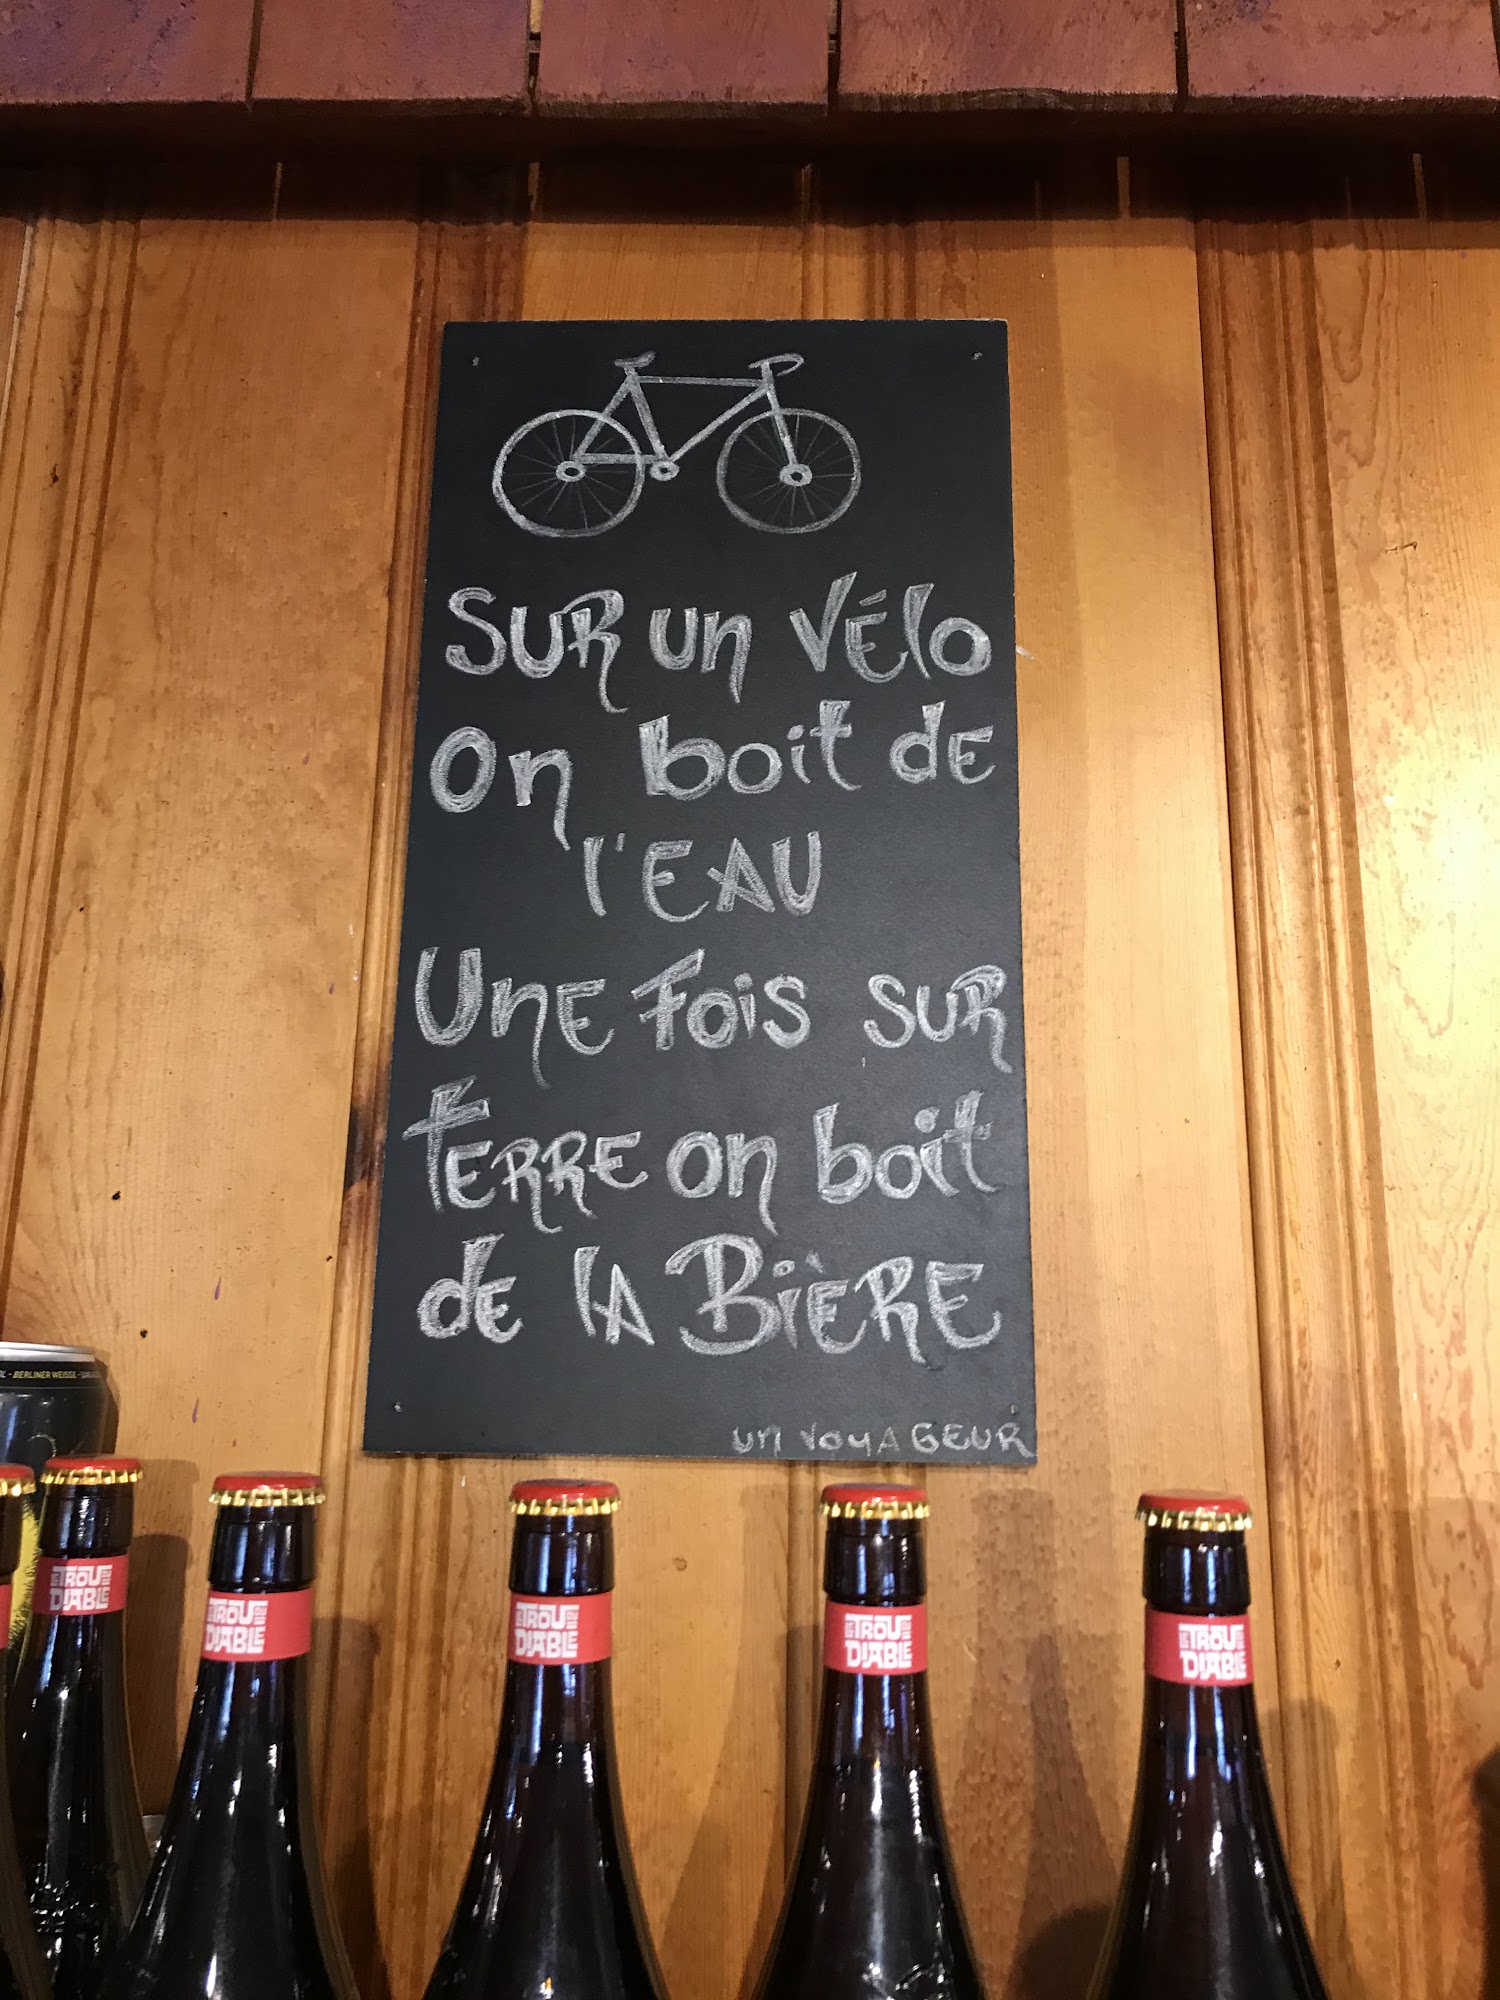 Sur un Vélo
On boit de
l'EAU
Une Fois sur
terre on boit
de la Bière
un voyageur
BERLINER WEISSE
LE TROU DU DIABLE
LE TROU DU DIABLE
LE TROU DU DIABLE
LE TROU DU DIABLE
LE TROU DU DIABLE